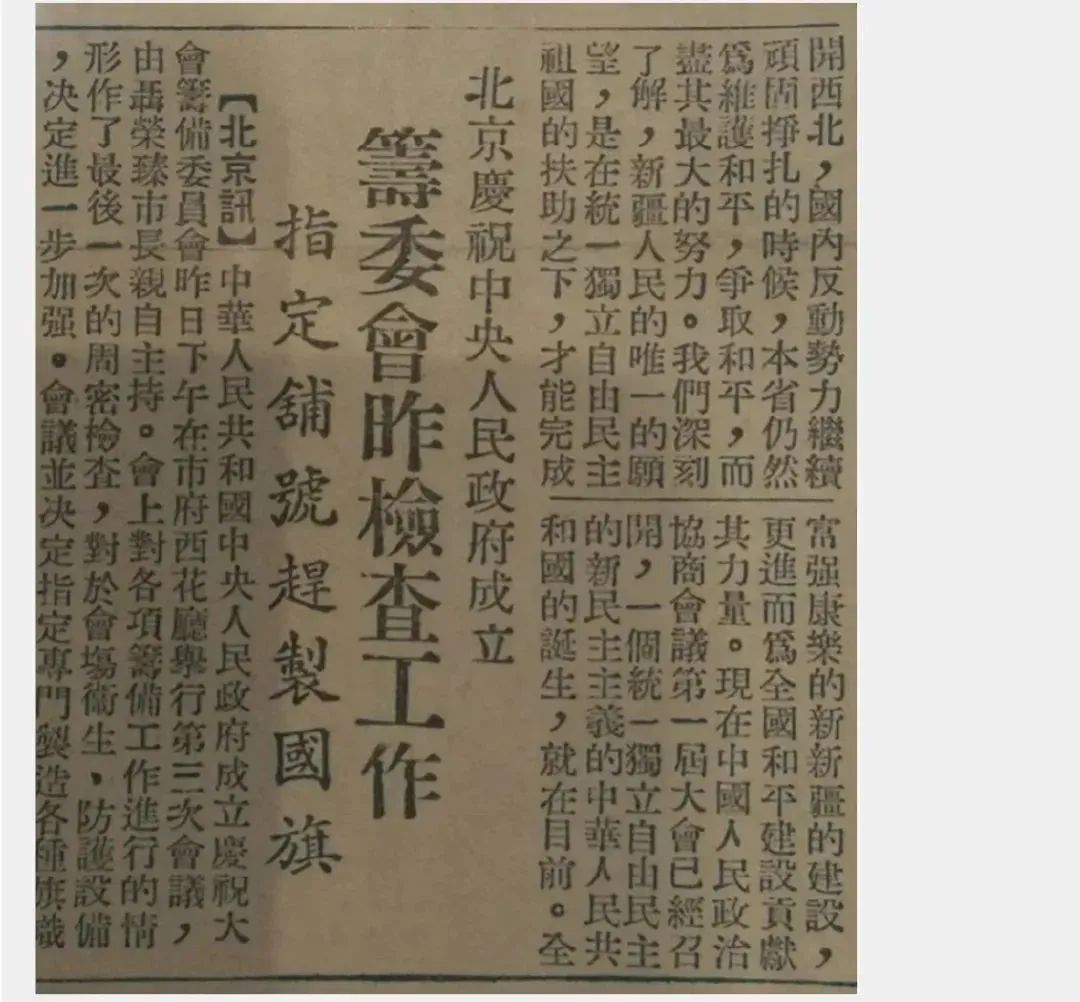 開西北，國內反動勢力繼續
頑固掙扎的時候，本省仍然
爲維護和平，爭取和平，而
盡其最大的努力。我們深刻
了解，新疆人民的唯一的願
望，是在統一獨立自由民主
祖國的扶助之下，才能完成
富强康樂的新新疆的建設，
更進而爲全國和平建設貢獻
其力量。現在中國人民政治
協商會議第一屆大會已經召
開，一個統一獨立自由民主
的新民主主義的中華人民共
和國的誕生，就在目前。全
北京慶祝中央人民政府成立
籌委會昨檢查工作
指定舖號趕製國旗
【北京訊】中華人民共和國中央人民政府成立慶祝大
會籌備委員會昨日下午在市府西花廳舉行第三次會議，
由聶榮臻市長親自主持。會上對各項籌備工作進行的情
形作了最後一次的周密檢查，對於會塲衞生、防護設備
，决定進一步加强。會議並决定指定專門製造各種旗幟